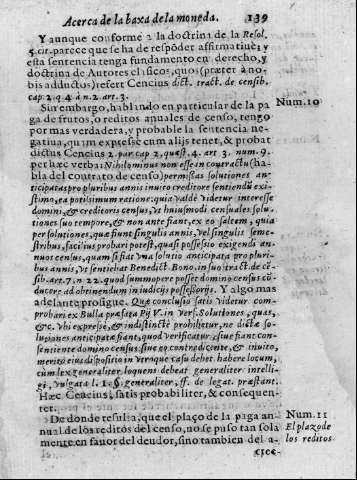 Acerca de la baxa de la moneda. 139
Y aunque conforme a la doctrina de la Resol.
5. cit. parece que se ha de respõder affirmatiuè; y
esta sentencia tenga fundamento en derecho, y
doctrina de Autores clasicos, quos (præter à no-
bis adductos) refert Cencius dict. tract. de censib.
cap. 2. q. 4. à n. 2. art. 3.
Sin embargo, hablando en particular de la pa Num. 10
ga de frutos, o reditos anuales de censo, tengo
por mas verdadera, y probable la sentencia ne-
gatiua, quam expressè cum alijs tenet, & probat
dictus Cencius 2. par cap 2, quæst. 4. art 3. num. 9.
per hæc verba: Nihilominus non esse in contractu (ha-
bla del contrato de censo) permissas solutiones an-
ticipatas pro pluribus annis inuito creditore sentiendũ exi-
stimo, ea potissimum ratione: quia valdè videtur interesse
domini, & creditoris census, vt huiusmodi censuales solu-
tiones suo tempore, & non ante fiant, ex eo saltem, quia
per solutiones, quæ fiunt singulis annis, vel singulis seme-
stribus, facilius probari potest, quasi possessio exigendi an-
nuos census, quam si fiat vna solutio anticipata pro pluri-
bus annis, vt sentiebat Benedict. Bono. in suo tract. de cẽ-
sib. art. 7. n 22. quod summopere posset domino census cõ-
ducere, ad obtinendum in iudicijs possessorijs. Y algo mas
adelante prosigue. Quæ conclusio satis videtur com-
probari ex Bulla præfata Pij V. in vers. Solutiones, quas,
&c. vbi expressè, & indistinctè prohibetur, ne dictæ so-
lutiones anticipatæ fiant, quod verificatur, siue fiant con-
sentiente domino census, siue eo contradicente, & inuito,
meritò eius dispositio in vtroque casu debet habere locum,
cùm lex generaliter loquens debeat generaliter intelli-
gi, vulgata l. 1. §. generaliter, ff. de legat. præstant.
Hæc Cencius, satis probabiliter, & consequen-
ter.
De donde resulta, que el plaço de la paga an Num. 11
nual de los reditos del censo, no se puso tan sola El plazo de
mente en fauor del deudor, sino tambien del a- los reditos
cree-